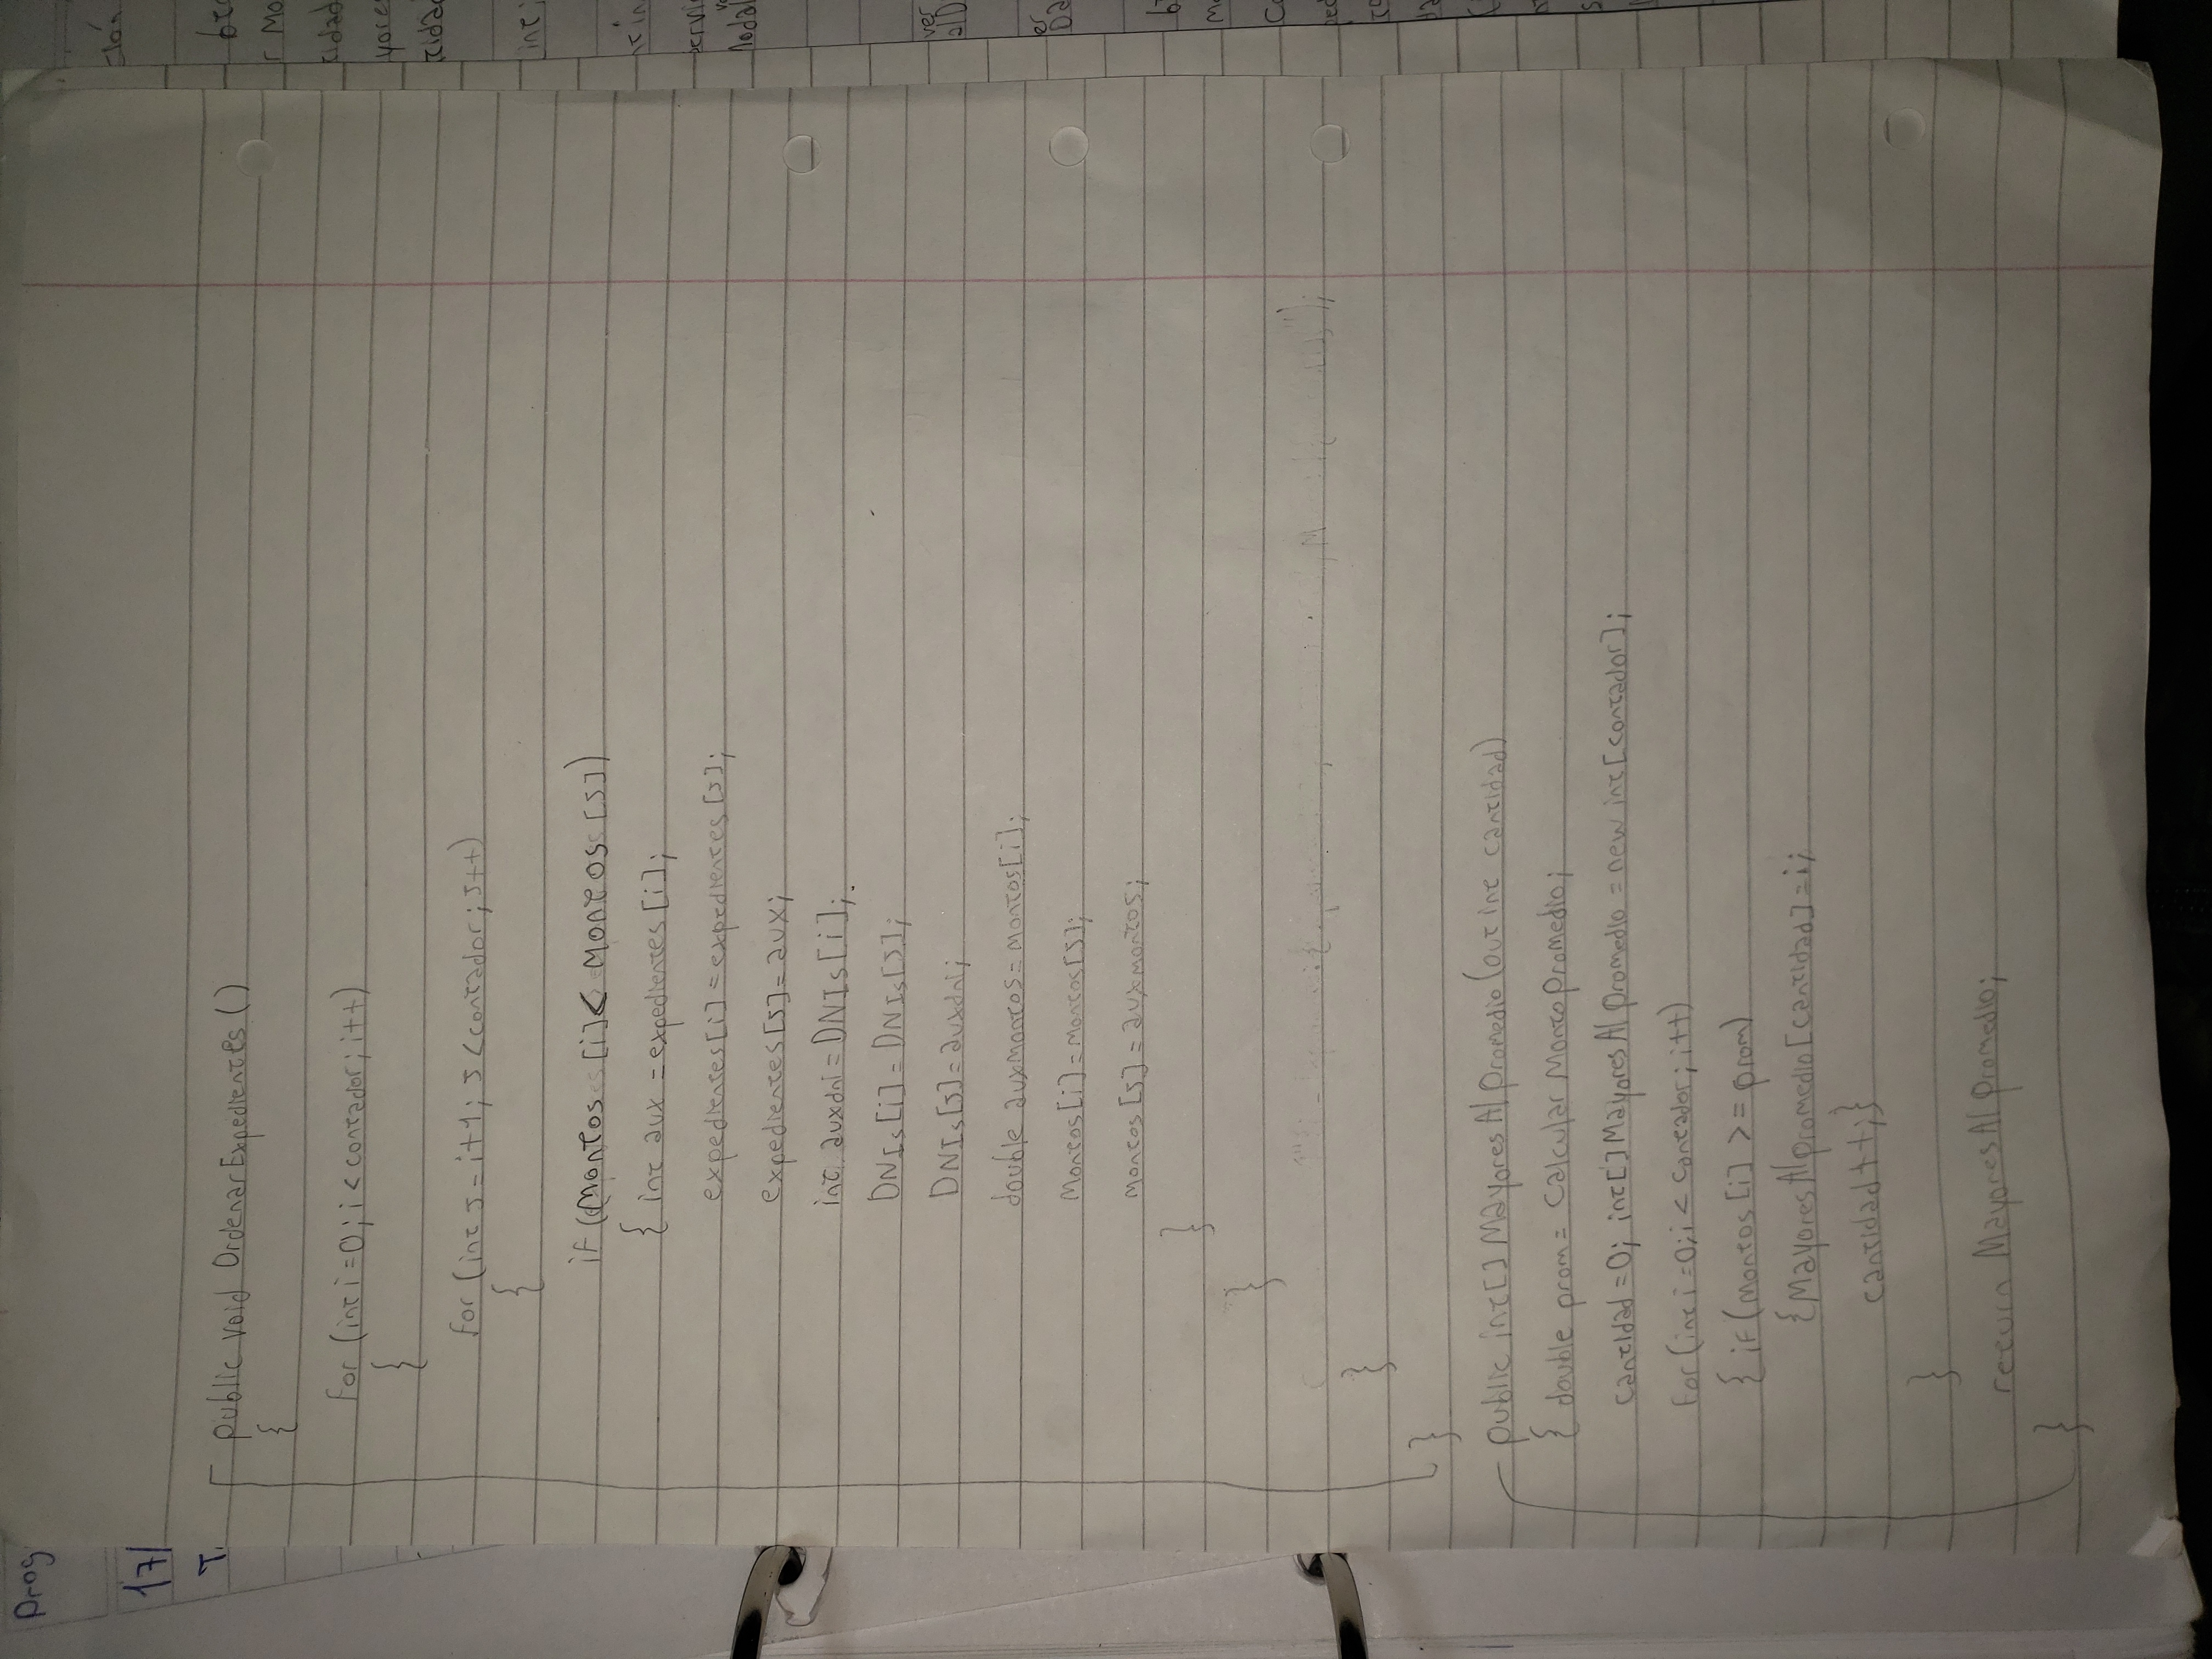 Prog
17/
T.
public void OrdenarExpedientes ()
{
for (int i=0; i < contador; i++)
{
for (int j=i+1; j <contador; j++)
{
if (montos [i]< MONTOS [j])
{ int aux = expedientes [i];
expedientes[i] = expedientes [j];
expedientes [j]= aux;
int auxdni = DNIs [i];
DNIs [i] = DNIs [j];
DNIs [j]= auxdni;
double auxmontos= montos[i];
Montos [i] = montos [j];
montos [j] = auxmontos;
}
}
}
}
public int[] MayoresAlPromedio (out int cantidad)
{ double prom= Calcular MontoPromedio;
cantidad =0; int[] MayoresAlPromedio = new int[contador];
for (int i=0; i < contador; i++)
{ if (montos [i] >= prom)
{MayoresAlpromedio[cantidad] = i;
cantidad++;}
}
return MayoresAlPromedio;
}
ción
r Mo
tidad
yores
tidad
int i